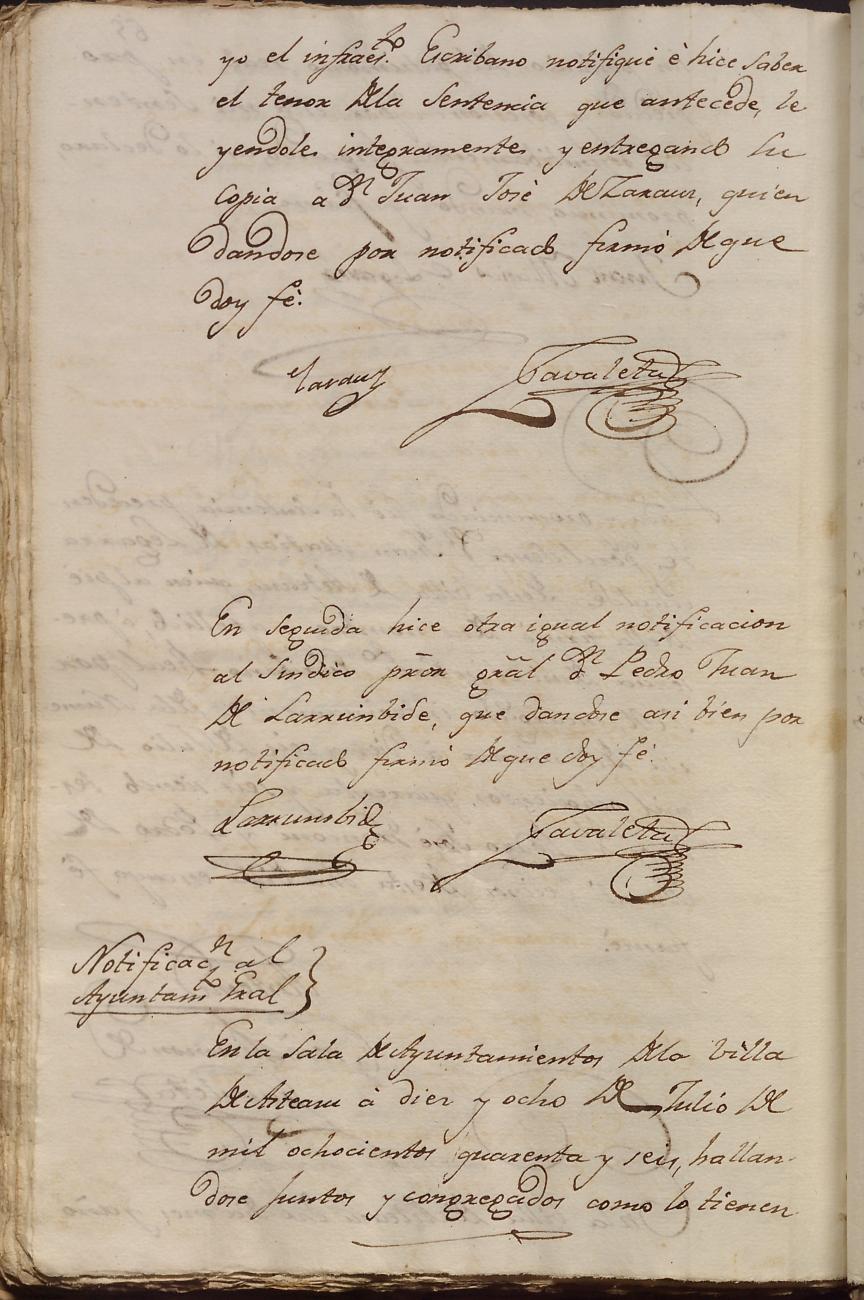 yo el infraes.to Escribano notifiquè è hice saber
el tenor Dla Sentencia que antecede, le
yendole integramente y entregando su
copia a Dn Juan Josè De Zarauz, quien
dandose por notificado firmò De que
doy fè.
Zarauz Zavaleta
En seguida hice otra igual notificacion
al Sindico pror gral dn Pedro Juan
De Larrumbide, que dandose asi bien por
notificado firmò De que doy fè.
Larrumbide Zavaleta
Notificacn al
Ayuntamto Gral
En la Sala De Ayuntamientos Dla Villa
De Ateaun à diez y ocho De Julio De
mil ochocientos quarenta y seis, hallan-
dose juntos y congregados como lo tienen